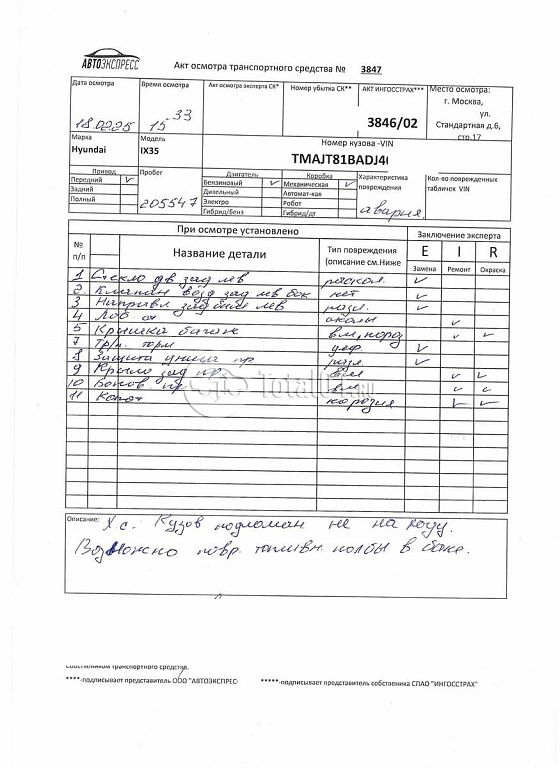 АВТОЭКСПРЕСС
Акт осмотра транспортного средства № 3847
Дата осмотра Время осмотра Акт осмотра эксперта СК* Номер убытка СК** АКТ ИНГОССТРАХ*** Место осмотра:
18.02.25 15 33 3846/02 г. Москва,
ул.
Стандартная д.6,
стр.17
Марка Модель Номер кузова -VIN
Hyundai IX35 TMAJT81BADJ4
Привод Пробег Двигатель Коробка Характеристика повреждения Кол-во поврежденных табличек VIN
Передний ✓ 205547 Бензиновый ✓ Механическая ✓ авария.
Задний Дизельный Автомат-кая
Полный Электро Робот
Гибрид/бенз Гибрид/дт
При осмотре установлено Заключение эксперта
№ п/п Название детали Тип повреждения (описание см.Ниже E I R
Замена Ремонт Окраска
1 Стекло дв зад лев раскол. ✓
2 Клапан возд зад лев бок нет ✓
3 Направл зад бамп лев разл. ✓
4 Лоб ст сколы ✓
5 Крышка багаж вм, короз ✓ ✓
7 Тр/п. торм деф. ✓
8 Защита днища пр разл ✓
9 Крыло зад пр. вм ✓ ✓
10 Боков пр вм ✓ ✓
11 Капот корозия ✓ ✓
Total01.ru
Описание: Х с. Кузов подломан не на ходу.
Возможно повр. топливн. колбы в баке.
собственником транспортного средства.
****-подписывает представитель ООО "АВТОЭКСПРЕС *****-подписывает представитель собственика СПАО "ИНГОССТРАХ"